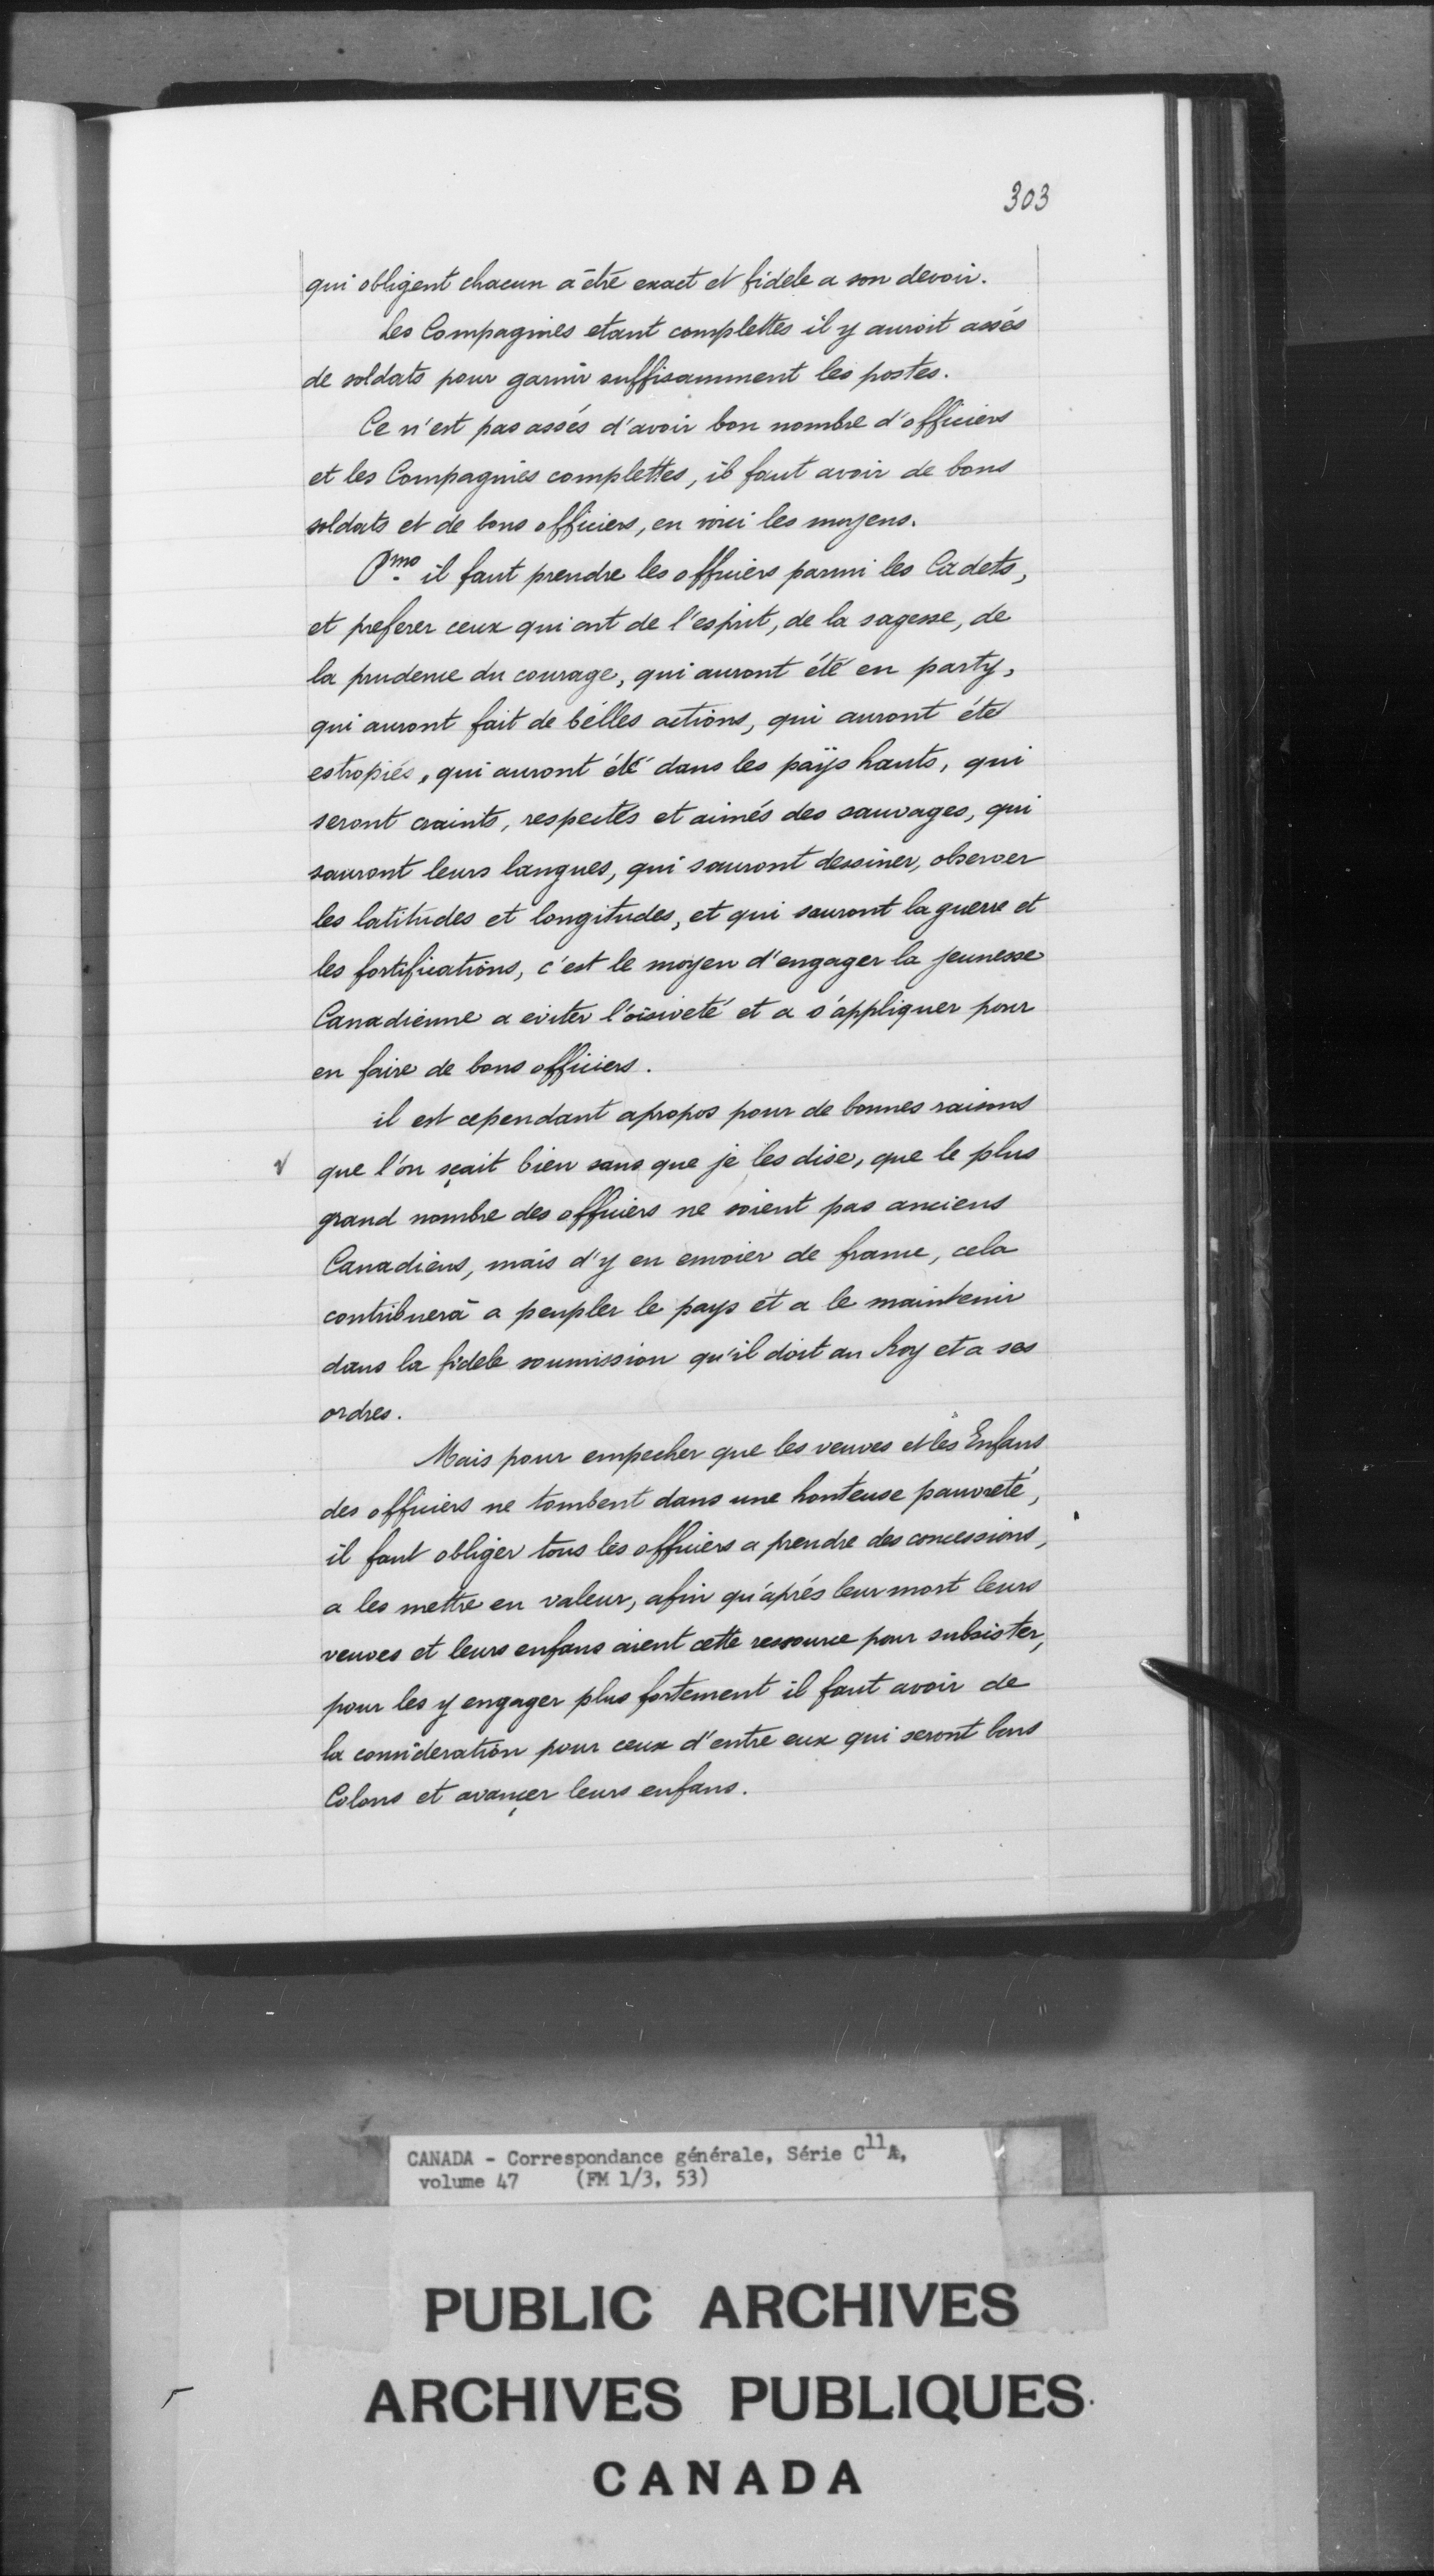 303
qui obligent chacun a être exact et fidele a son devoir.
Les Compagnies etant complettes il y auroit assés
de soldats pour garnir suffisamment les postes.
Ce n'est pas assés d'avoir bon nombre d'officiers
et les Compagnies complettes, il faut avoir de bons
soldats et de bons officiers, en voici les moyens.
Pmo il faut prendre les officiers parmi les Cadets,
et preferer ceux qui ont de l'esprit, de la sagesse, de
la prudence du courage, qui auront été en party,
qui auront fait de bélles actions, qui auront été
estropiés, qui auront été dans les païs hauts, qui
seront craints, respectés et aimés des sauvages, qui
sauront leurs langues, qui sauront dessiner, observer
les latitudes et longitudes, et qui sauront la guerre et
les fortifications, c'est le moyen d'engager la jeunesse
Canadienne a eviter l'oisiveté et a s'appliquer pour
en faire de bons officiers.
il est cependant apropos pour de bonnes raisons
que l'on sçait bien sans que je les dise, que le plus
grand nombre des officiers ne soient pas anciens
Canadiens, mais d'y en envoier de france, cela
contribuera a peupler le pays et a le maintenir
dans la fidele soumission qu'il doit au Roy et a ses
ordres.
Mais pour empecher que les veuves et les Enfans
des officiers ne tombent dans une honteuse pauvreté,
il faut obliger tous les officiers a prendre des concessions,
a les mettre en valeur, afin qu'aprés leur mort leurs
veuves et leurs enfans aient cette ressource pour subsister,
pour les y engager plus fortement il faut avoir de
la consideration pour ceux d'entre eux qui seront bons
Colons et avançer leurs enfans.
CANADA - Correspondance générale, Série C11A,
volume 47 (FM 1/3, 53)
PUBLIC ARCHIVES
ARCHIVES PUBLIQUES
CANADA